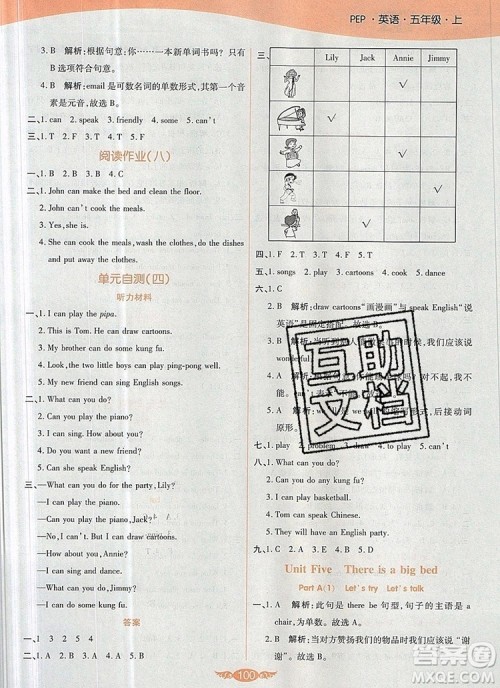 PEP·英语·五年级·上
3. B 解析:根据句意:你……一本新单词书吗?可知选项B最符合句意。
4. B 解析:email是可数名词的单数形式,其第一个音素是元音,故选B。
二、1. can 2. speak 3. friendly 4. some 5. can't
三、1. T 2. F 3. T 4. T
阅读作业(八)
一、1. D 2. B 3. B 4. C
二、1. John can make the bed and clean the floor.
2. John can't cook the meals.
3. Yes, she is.
4. She can cook the meals, wash the clothes, do the dishes
and put away the clothes.
单元自测(四)
听力材料
一、1. I can play the pipa.
2. This is Tom. He can draw cartoons.
3. My brother can do some kung fu.
4. Look, the two little boys can play ping-pong well.
5. My new friend can sing English songs.
二、1. What can you do?
2. Can you play the piano?
3. I can sing. How about you?
4. Do you want a new friend?
5. Can you speak English?
三、—What can you do for the party, Lily?
—I can play the piano.
—Can you play the piano, Jack?
—No, I can't. But I can draw cartoons.
—How about you, Annie?
—I can dance.
—What can you do, Jimmy?
—I can do kung fu.
答案
一、1 3 2 5 4
二、1. C 2. A 3. B 4. A 5. B
三、
Lily Jack Annie Jimmy
四、1. F 2. T 3. T 4. T 5. F
五、1. songs 2. play 3. do 4. draw 5. can't
六、1. C
2. B 解析:draw cartoons“画漫画”与speak English“说
英语”
wonderful
4. A 解析:
5. A 解析:we'll
原形。故选A。
七、1. play 2. problem
八、1. What can you do?
2. Can you do any kung fu?
3. I can play basketball.
4. Tom can speak Chinese.
5. They will have an English party.
九、1. C 2. A 3. E 4. D 5. B
Unit Five There is a big bed
Part A(1) Let's try Let's talk
一、1. A 解析:此句是there be句型,句子的主语是a
chair,为单数,故选A。
2. B 解析:当对方赞扬我们的物品时我们应该说“谢
谢”。故选B。
100
互助文档
答案圈
MXQE.COM